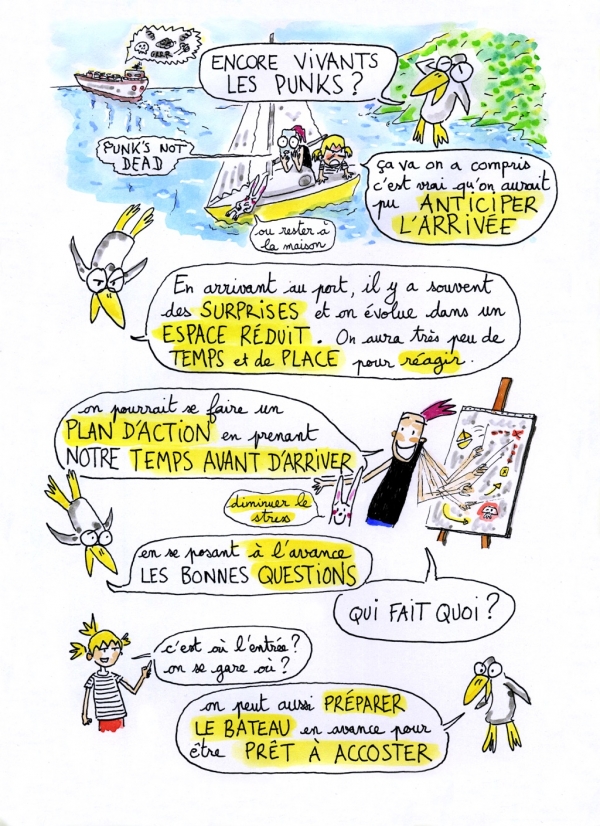 GRRR
ENCORE VIVANTS
LES PUNKS ?
PUNK'S NOT
DEAD
ça va on a compris
c'est vrai qu'on aurait
pu ANTICIPER
L'ARRIVÉE
ou rester à
la maison
En arrivant au port, il y a souvent
des SURPRISES et on évolue dans un
ESPACE RÉDUIT. On aura très peu de
TEMPS et de PLACE pour réagir.
on pourrait se faire un
PLAN D'ACTION en prenant
NOTRE TEMPS AVANT D'ARRIVER
diminuer le
stress
en se posant à l'avance
LES BONNES QUESTIONS
QUI FAIT QUOI ?
c'est où l'entrée ?
on se gare où ?
on peut aussi PRÉPARER
LE BATEAU en avance pour
être PRÊT À ACCOSTER